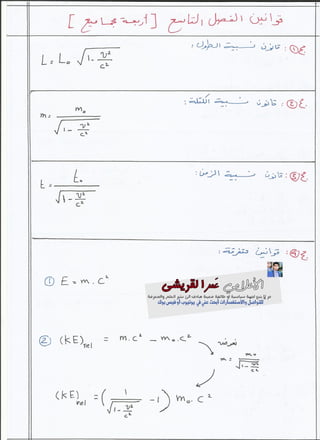 قوانين الفصل التاسع [أربعة مجاميع]
مج①: قانون نسبية الطول:
L = L₀ √(1 - v²/c²)
مج②: قانون نسبية الكتلة:
m = m₀ / √(1 - v²/c²)
مج③: قانون نسبية الزمن:
t = t₀ / √(1 - v²/c²)
مج④: قوانين متفرقة:
① E = m.c²
عمر القريشي
للتواصل والاستفسارات أبحث عني في يوتيوب أو فيس بوك
② (KE)rel = m.c² - m₀.c²
نعوض
m = m₀ / √(1 - v²/c²)
(KE)rel = (1 / √(1 - v²/c²) - 1) m₀.c²